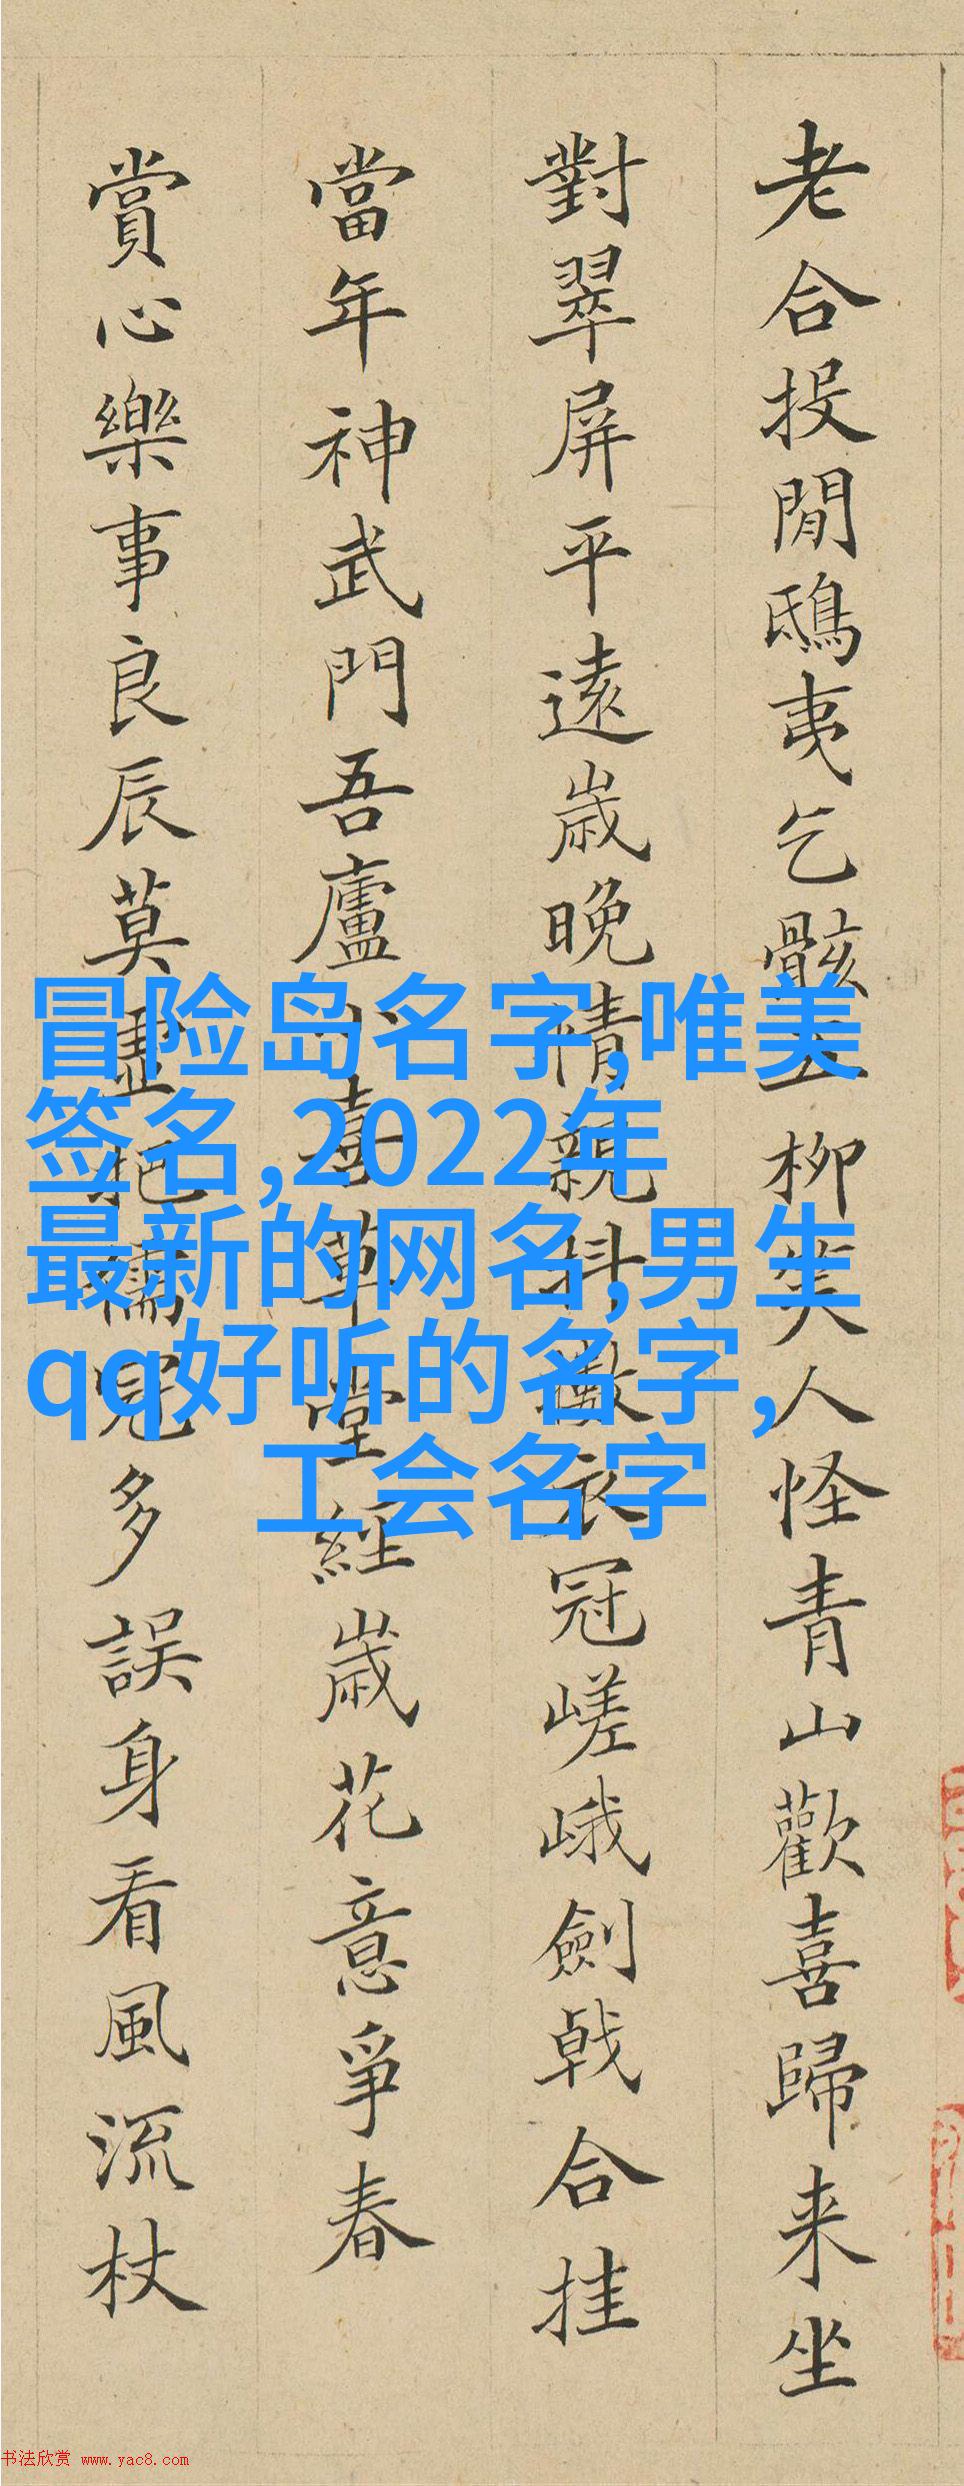 老合投閒鴟夷乞骸五柳笑人怪青山歡喜歸来坐
對翠屏平遠歲晚情親抖擻衣冠嵯峨劍戟合挂
當年神武門吾廬小喜草堂經歲花意爭春
賞心樂事良辰莫虛把儒冠多誤身看風流杖
冒险岛名字,唯美
签名,2022年
最新的网名,男生
qq好听的名字,
工会名字
书法欣赏 www.yac8.com